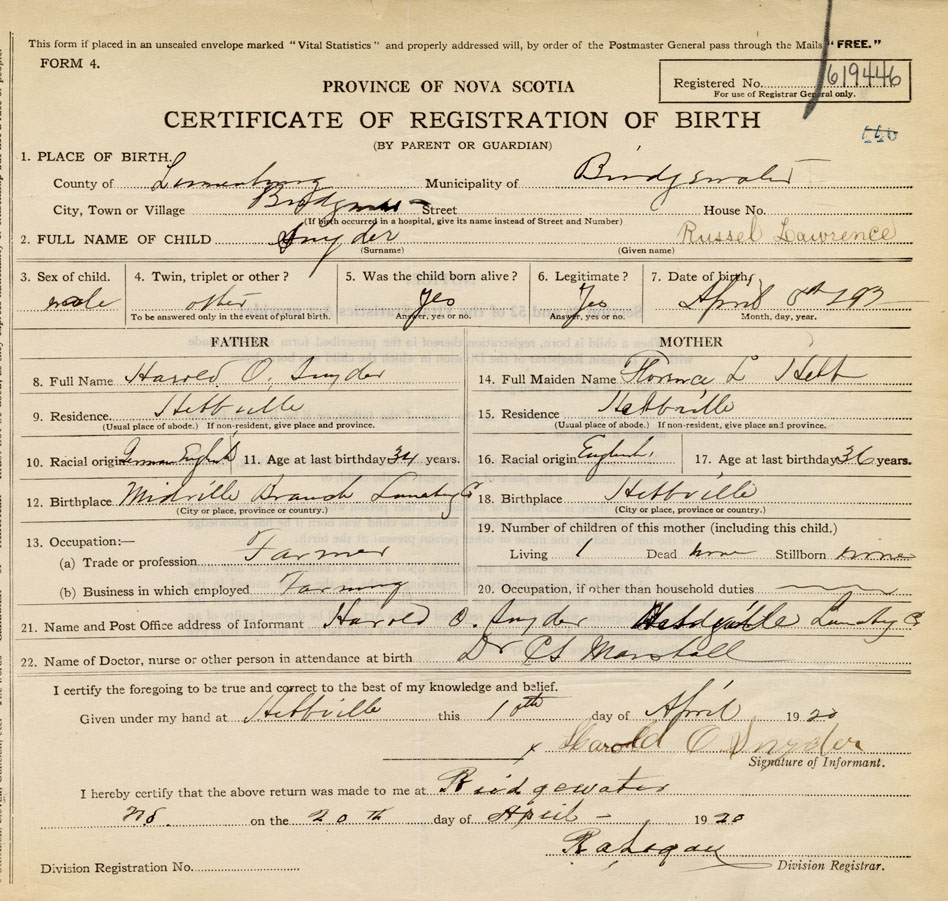 This form if placed in an unsealed envelope marked "Vital Statistics" and properly addressed will, by order of the Postmaster General pass through the Mails "FREE."
FORM 4.
Registered No. 619446
For use of Registrar General only.
PROVINCE OF NOVA SCOTIA
CERTIFICATE OF REGISTRATION OF BIRTH
(BY PARENT OR GUARDIAN)
1. PLACE OF BIRTH.
County of Lunenburg Municipality of Bridgewater
City, Town or Village Street House No.
(If birth occurred in a hospital, give its name instead of Street and Number)
2. FULL NAME OF CHILD Snyder Russel Lawrence
(Surname) (Given name)
3. Sex of child. 4. Twin, triplet or other? 5. Was the child born alive? 6. Legitimate? 7. Date of birth
male other Yes Yes April 8th 193
To be answered only in the event of plural birth. Answer, yes or no. Answer, yes or no. Month, day, year.
FATHER MOTHER
8. Full Name Harold O. Snyder 14. Full Maiden Name Florence L Hebb
9. Residence. Hebbville 15. Residence Hebbville
(Usual place of abode.) If non-resident, give place and province. (Usual place of abode.) If non-resident, give place and province.
10. Racial origin German English 11. Age at last birthday 34 years. 16. Racial origin English. 17. Age at last birthday 36 years.
12. Birthplace Midville Branch Lunebg Co 18. Birthplace Hebbville
(City or place, province or country.) (City or place, province or country.)
13. Occupation:— 19. Number of children of this mother (including this child.)
(a) Trade or profession Farmer Living 1 Dead none Stillborn none
(b) Business in which employed Farming 20. Occupation, if other than household duties
21. Name and Post Office address of Informant Harold O. Snyder Hebbville
22. Name of Doctor, nurse or other person in attendance at birth Dr CS Marshall
I certify the foregoing to be true and correct to the best of my knowledge and belief.
Given under my hand at Hebbville this 10th day of April 19
x Harold O Snyder
Signature of Informant.
I hereby certify that the above return was made to me at Bridgewater
NS. on the 20th day of April 19
Division Registrar.
Division Registration No.